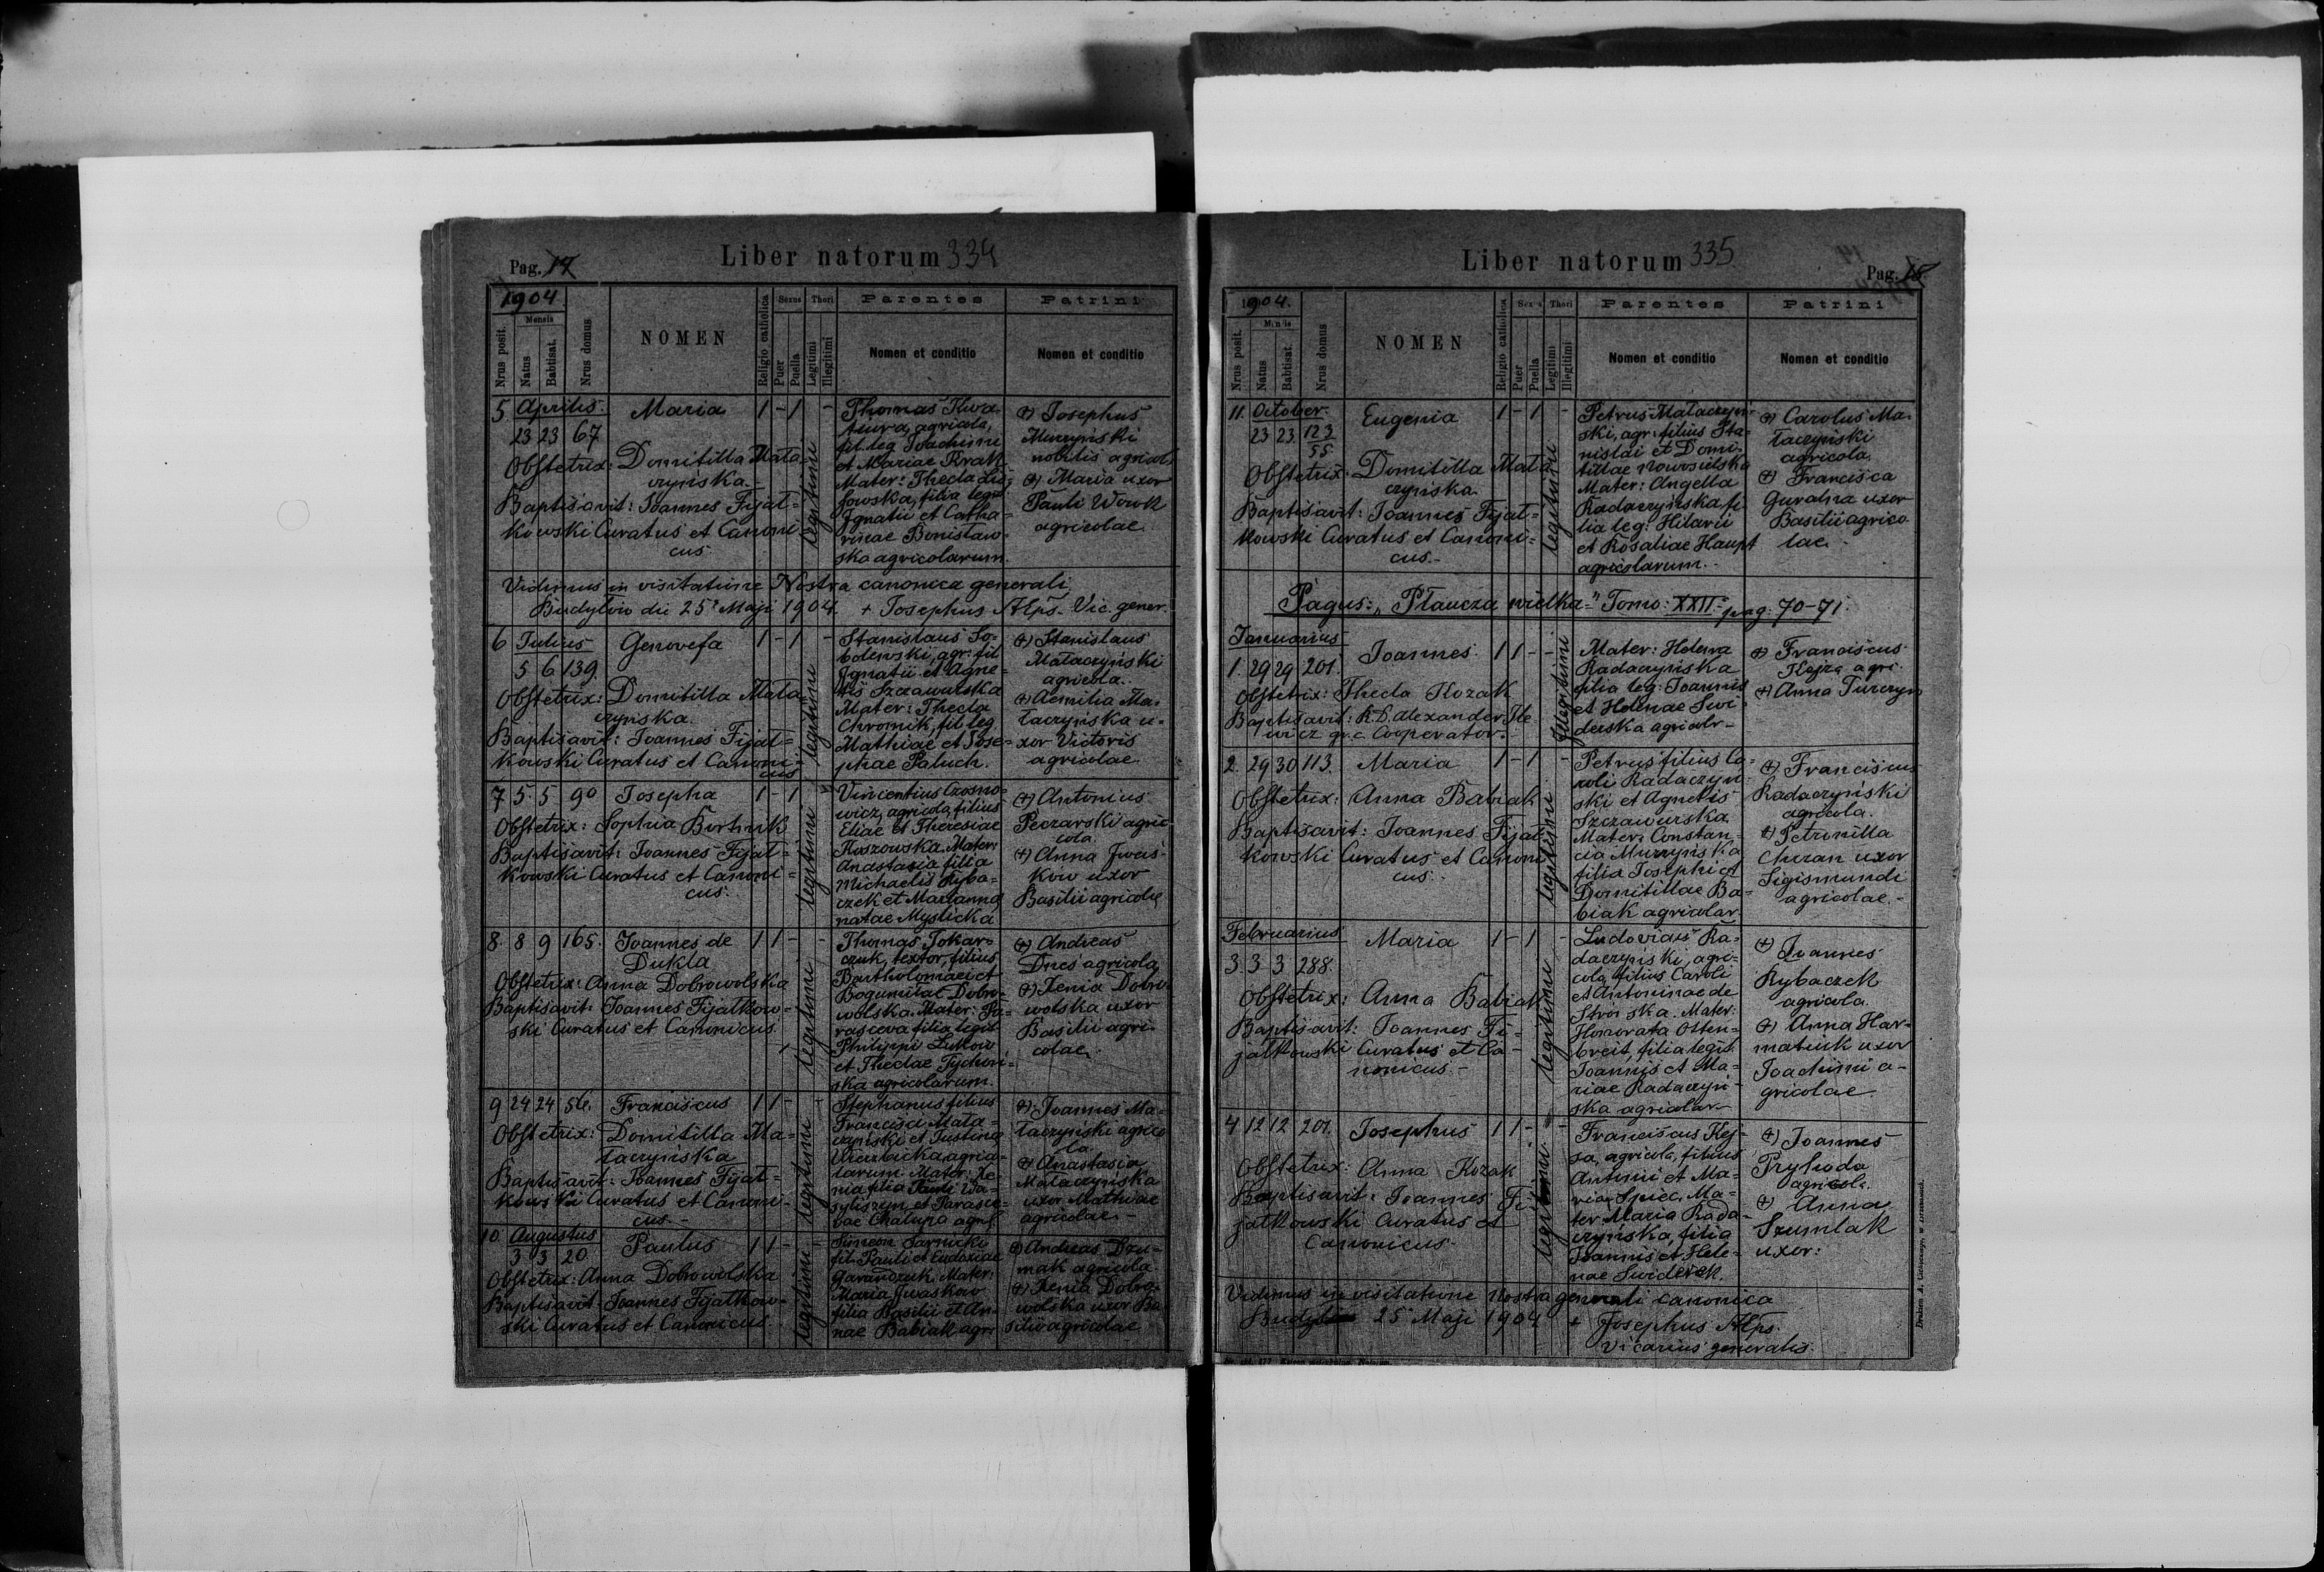 Pag. 17
Liber natorum 334
1904.
Mensis
Nrus posit.
Natus
Babtisat.
Nrus domus
NOMEN
Religio catholica
Sexus
Puer
Puella
Thori
Legitimi
Illegitimi
Parentes
Nomen et conditio
Patrini
Nomen et conditio
5. Aprilis.
23 23 67.
Maria 1 - 1 -
Obstetrix: Domitilla Mała=
czyńska.
Baptisavit: Joannes Fijał=
kowski Curatus et Canoni=
cus.
legitimi
Thomas
agricola,
fil. leg. Joachimi
et Mariae Krak
Mater: Thecla Lis
sowska, filia legit.
Ignatii et Catha=
rinae Bonisław=
ska agricolarum.
Josephus
Murzyński
nobilis agricol.
Maria uxor
Pauli Wowk
agricolae.
Vidimus in visitatione Nostra canonica generali
Budyłów die 25 Maji 1904. + Josephus AEps. Vic. gener.
6 Julius
5 6 139.
Genovefa 1 - 1 -
Obstetrix: Domitilla Mała
czyńska.
Baptisavit: Joannes Fijał=
kowski Curatus et Canoni=
cus
legitimi
Stanislaus So=
bolewski, agr. fil
Ignatii et Agne=
tis Szczawurska
Mater: Thecla
Chromik, fil. leg.
Mathiae et Jose=
phae Paluch.
Stanislaus
Małaczyński
agricola.
Aemilia Ma=
łaczyńska u=
xor Victoris
agricolae
7 5 5 90
Josepha 1 - 1 -
Obstetrix: Sophia Bortnik
Baptisavit: Joannes Fijał=
kowski Curatus et Canoni=
cus.
legitimi
Vincentius Czosno=
wicz, agricola, filius
Eliae et Theresiae
Kloszowska. Mater:
Anastasia filia
Michaelis Ryba=
czek et Marianna
natae Myslicka
Antonius
Peczarski agri=
cola.
Anna Iwaś=
ków uxor
Basilii agricolae
8. 8 9 165.
Joannes de
Dukla 1 1 - -
Obstetrix: Anna Dobrowolska
Baptisavit: Joannes Fijałkow=
ski Curatus et Canonicus.
legitimi
Thomas Tokar=
czuk, textor, filius
Bartholomaei et
Bogumilae Dobro=
wolska. Mater: Pa=
rasceva filia legit.
Philippi Lukow
et Theclae Tychoń=
ska agricolarum.
Andreas
Dnes agricola
Xenia Dobro=
wolska uxor
Basilii agri=
colae.
9 24 24 56.
Franciscus 1 1 - -
Obstetrix: Domitilla Ma=
łaczyńska
Baptisavit: Joannes Fijał=
kowski Curatus et Canoni=
cus.
legitimi
Stephanus filius
Francisci Mała=
czyński et Justina
agrico=
larum. Mater: Xe=
nia filia Pauli Wa=
syliszyn et Parasce=
vae Chalupa agric.
Joannes Ma=
łaczyński agrico
la.
Anastasia
Małaczyńska
uxor Mathiae
agricolae.
10 Augustus
3 3 20
Paulus 1 1 - -
Obstetrix: Anna Dobrowolska
Baptisavit: Joannes Fijałkow=
ski Curatus et Canonicus.
legitimi
Simeon Sarnicki
fil. Pauli et Eudoxiae
Mater:
Maria Iwaskow
filia Basilii et An=
nae Babiak agr.
Andreas
agricola
Xenia Dobro=
wolska uxor Ba
silii agricolae
Liber natorum 335.
Pag. 18
1904.
Mensis
Nrus posit.
Natus
Babtisat.
Nrus domus
NOMEN
Religio catholica
Sexus
Puer
Puella
Thori
Legitimi
Illegitimi
Parentes
Nomen et conditio
Patrini
Nomen et conditio
11. October.
23 23. 123
55.
Eugenia 1 - 1 -
Obstetrix: Domitilla Mała
czyńska.
Baptisavit: Joannes Fijał=
kowski Curatus et Canoni=
cus.-
legitimi
Petrus Małaczyń=
ski, agr. filius Sta=
nislai et Domi=
tillae Nowosielska
Mater: Angella
Radaczyńska fi
lia leg. Hilarii
et Rosaliae Haupt
agricolarum.-
Carolus Ma=
łaczyński
agricola.
Francisca
Guralna uxor
Basilii agrico
lae.-
Pagus: „Płaucza wielka" Tomo: XXII. pag. 70-71.
Januarius
1. 29 29 201.
Joannes 1 1 - -
Obstetrix: Thecla Kozak
Baptisavit: R. D. Alexander Ile
wicz gr. c. Cooperator.-
illegitimi
Mater: Helena
Radaczyńska
filia leg: Joannis
et Helenae Swi=
derska agricolr.-
Franciscus
Kejza agri.
Anna Turczyn
2. 29 30 113.
Maria 1 - 1 -
Obstetrix: Anna Babiak
Baptisavit: Joannes Fijał
kowski Curatus et Canoni
cus.-
legitimi
Petrus filius Ca=
roli Radaczyń=
ski et Agnetis
Szczawurska
Mater: Constan=
cia Murzyńska
filia Josephi et
Domitillae Ba=
biak agricolar.
Franciscus
Radaczyński
agricola.
Petronilla
uxor
Sigismundi
agricolae.-
Februarius
3. 3 3 288.
Maria 1 - 1 -
Obstetrix: Anna Babiak
Baptisavit: Joannes Fi=
jałkowski Curatus et Ca=
nonicus.-
legitimi
Ludovicus Ra=
daczyński, agri=
cola, filius Caroli
et Antoninae de
Strońska. Mater:
Honorata Otten=
breit, filia legit.
Joannis et Ma=
riae Radaczyń=
ska agricolar.-
Joannes
Rybaczek
agricola.
Anna Har=
matiuk uxor
Joachimi a=
gricolae
4 12 12 201.
Josephus 1 1 - -
Obstetrix: Anna Kozak
Baptisavit: Joannes Fi=
jałkowski Curatus et
Canonicus.-
legitimi
Franciscus Kej=
za, agricola, filius
Antonii et Ma=
riae Spiec. Ma=
ter Maria Rada=
czyńska, filia
Joannis et Hele=
nae Swiderek.
Joannes
Pryhoda
agricola.
Anna
Szumlak
uxor:
Vidimus in visitatione nostra generali canonica
25 Maji 1904 + Josephus AEps.
Vicarius generalis.